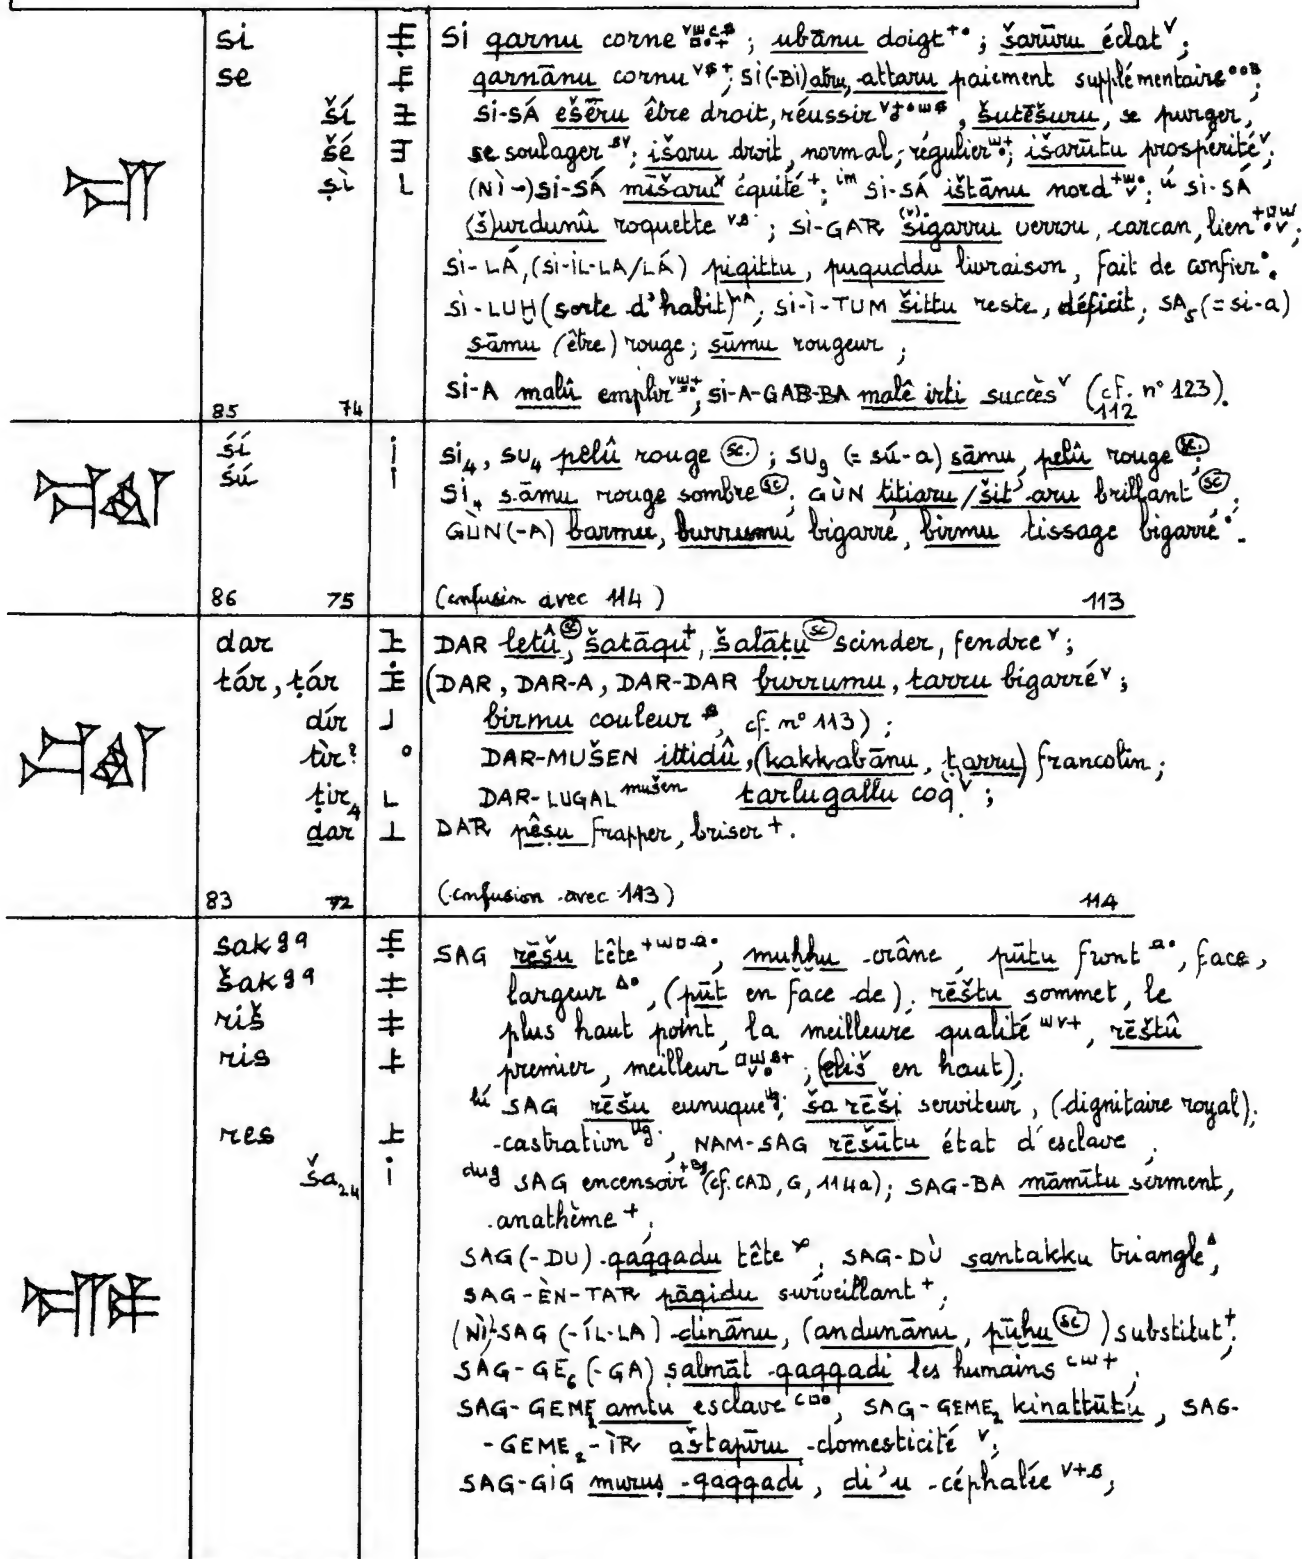 si SI qarnu corne ; ubānu doigt ; šarūru éclat ;
se qarnānu cornu ; SI(-BI) atru, attaru paiement supplémentaire ;
ší SI-SÁ ešēru être droit, réussir , šutēšuru, se purger,
šé se soulager ; išaru droit, normal, régulier ; išarūtu prospérité ;
ṣì (NÌ-)SI-SÁ mīšaru équité ; im SI-SÁ ištānu nord ; ú SI-SÁ
(š)urdunû roquette ; SI-GAR šigarru verrou, carcan, lien ;
SI-LÁ, (SI-ÌL-LA/LÁ) piqittu, puquddu livraison, fait de confier ,
SI-LUḪ (sorte d'habit) ; SI-Ì-TUM šittu reste, déficit ; SA₅ (= si-a)
sāmu (être) rouge ; sūmu rougeur ;
SI-A malû emplir ; SI-A-GAB-BA malê irti succès (cf. n° 123).
85 74 112
śí SI₄, SU₄ pelû rouge sc. ; SU₉ (= sú-a) sāmu, pelû rouge sc. ;
śú SI₄ sāmu rouge sombre sc ; GÙN titiaru/šit'aru brillant sc ;
GÙN(-A) barmu, burrumu bigarré, birmu tissage bigarré .
86 75 (confusion avec 114) 113
dar DAR letû sc, šatāqu, šalāṭu sc scinder, fendre ;
tár, ṭár (DAR, DAR-A, DAR-DAR burrumu, tarru bigarré ;
dír birmu couleur , cf. n° 113) ;
tìr? DAR-MUŠEN ittidû, (kakkabānu, ṭarru) francolin ;
ṭir₄ DAR-LUGAL mušen tarlugallu coq ;
ḏar DAR pêṣu frapper, briser .
83 72 (confusion avec 113) 114
sak gq SAG rēšu tête , muḫḫu crâne , pūtu front , face,
šak gq largeur , (pūt en face de), rēštu sommet, le
riš plus haut point, la meilleure qualité , rēštû
ris premier, meilleur , (eliš en haut),
lú SAG rēšu eunuque ; ša rēši serviteur, (dignitaire royal),
res castration , NAM-SAG rēšūtu état d'esclave ,
ša₂₄ dug SAG encensoir (cf. CAD, G, 114a) ; SAG-BA māmītu serment,
anathème ,
SAG(-DU) qaqqadu tête , SAG-DÙ santakku triangle ,
SAG-ÈN-TAR pāqidu surveillant ,
(NÌ)-SAG (-ÍL-LA) dinānu, (andunānu, pūḫu sc ) substitut ,
SAG-GE₆ (-GA) ṣalmāt qaqqadi les humains ,
SAG-GEME₂ amtu esclave , SAG-GEME₂ kinattūtu , SAG-
-GEME₂-ÌR aštapīru domesticité ,
SAG-GIG muruṣ qaqqadi , di'u céphalée ;